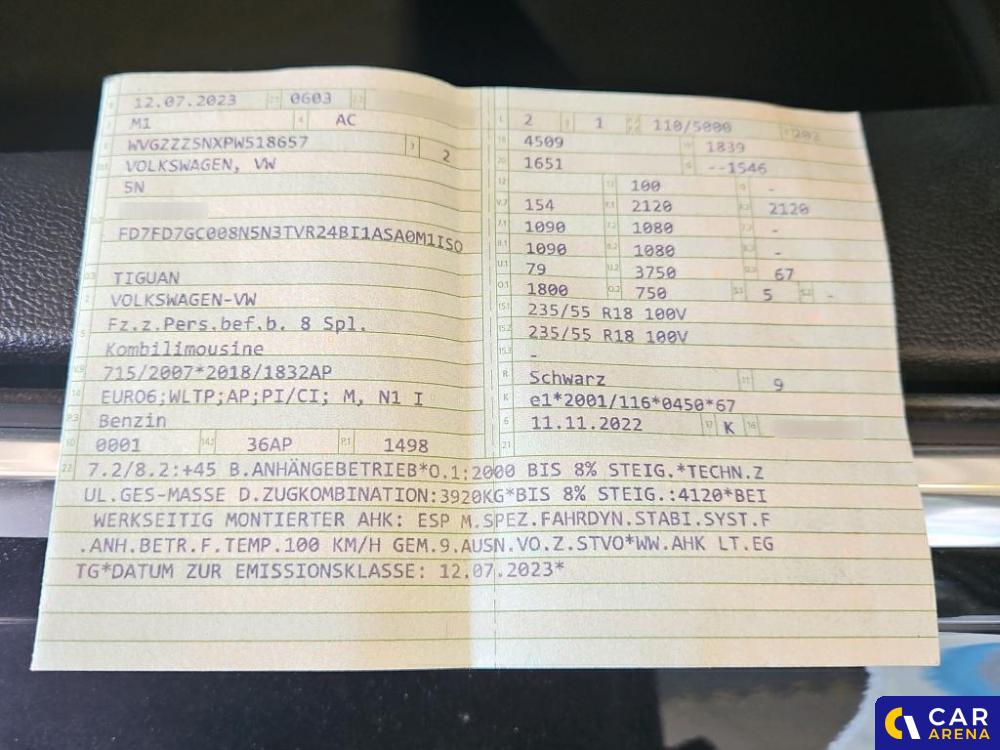 12.07.2023 0603
M1 AC
WVGZZZ5NXPW518657 2
VOLKSWAGEN, VW
5N
FD7FD7GC008N5N3TVR24BI1ASA0M1ISO
TIGUAN
VOLKSWAGEN-VW
Fz.z.Pers.bef.b. 8 Spl.
Kombilimousine
715/2007*2018/1832AP
EURO6;WLTP;AP;PI/CI; M, N1 I
Benzin
0001 36AP 1498
2 1 110/5000 202
4509 1839
1651 --1546
100 -
154 2120 2120
1090 1080 -
1090 1080 -
79 3750 67
1800 750 5 -
235/55 R18 100V
235/55 R18 100V
-
Schwarz 9
e1*2001/116*0450*67
11.11.2022 K
7.2/8.2:+45 B.ANHÄNGEBETRIEB*O.1:2000 BIS 8% STEIG.*TECHN.Z
UL.GES-MASSE D.ZUGKOMBINATION:3920KG*BIS 8% STEIG.:4120*BEI
WERKSEITIG MONTIERTER AHK: ESP M.SPEZ.FAHRDYN.STABI.SYST.F
.ANH.BETR.F.TEMP.100 KM/H GEM.9.AUSN.VO.Z.STVO*WW.AHK LT.EG
TG*DATUM ZUR EMISSIONSKLASSE: 12.07.2023*
CAR
ARENA